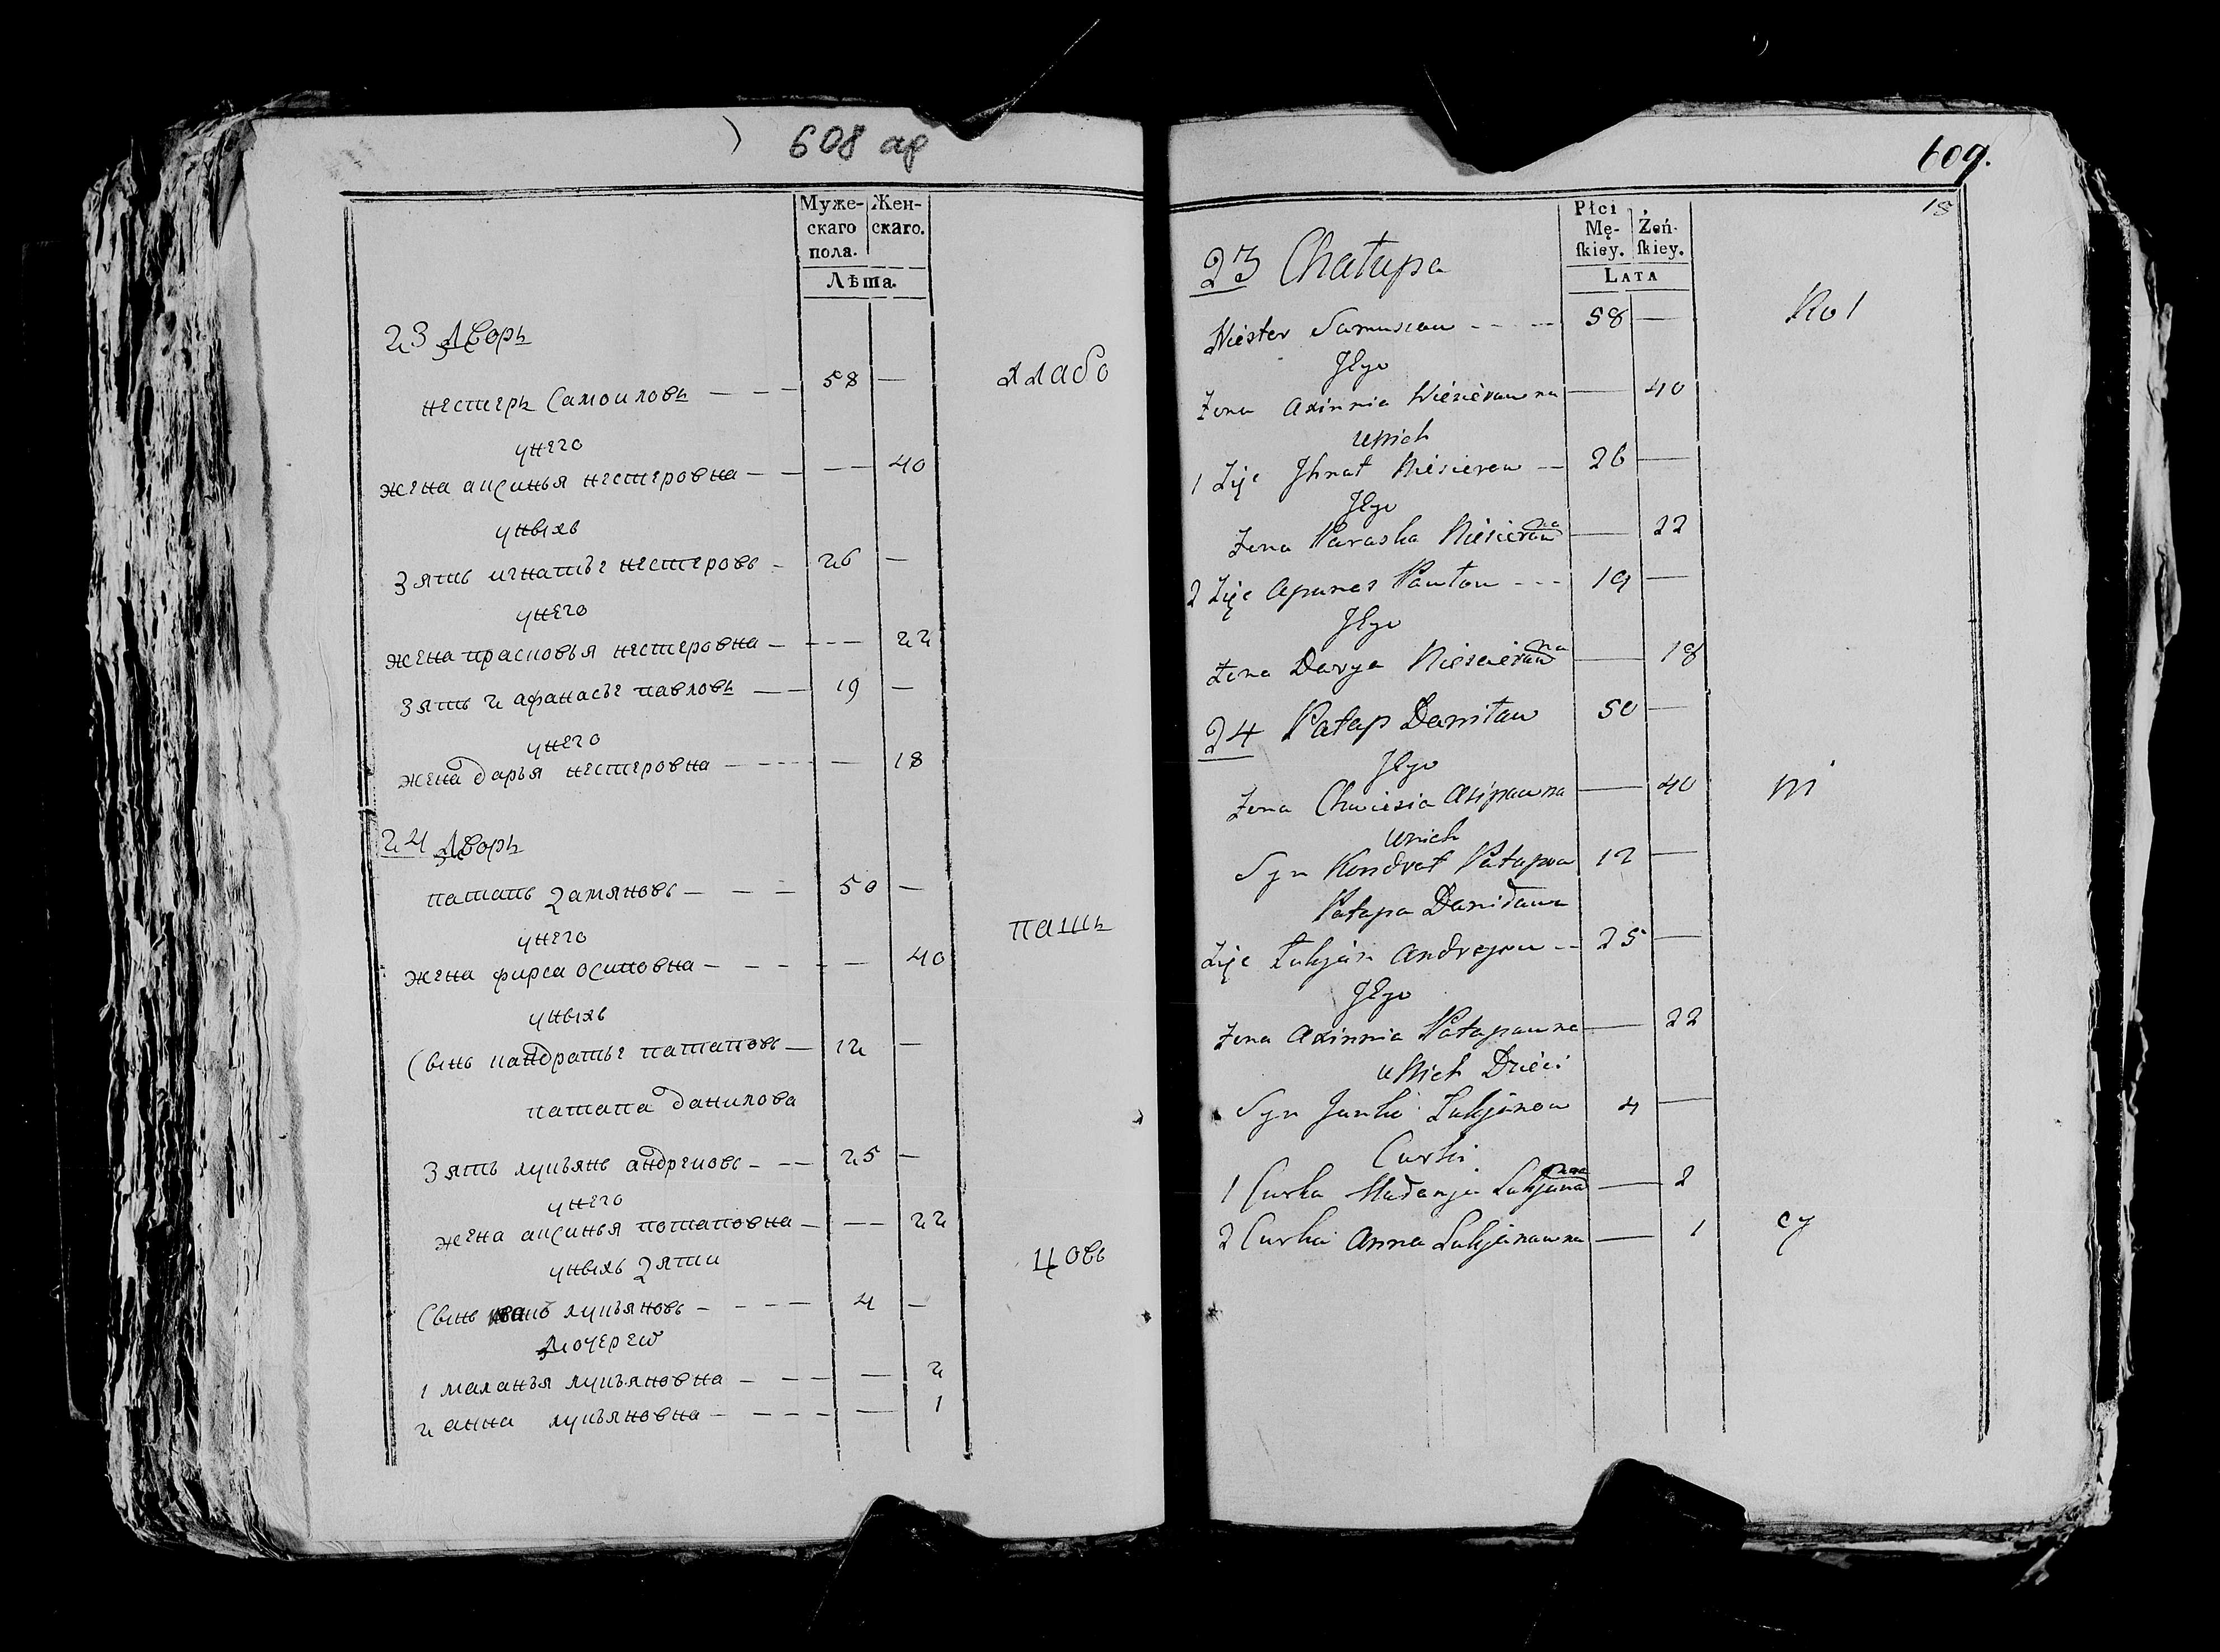 608 ар
Муже-
скаго
пола.
Жен-
скаго.
Лѣта.
23 Дворъ
нестеръ Самоиловъ — — — 58 —
унего
жена аксинья нестеровна — — — — 40
унихъ
зять игнатье нестеровъ - 26 —
унего
жена прасковья нестеровна — - — — 22
зять 2 афанасье павловъ — — 19 —
унего
жена дарья нестеровна — — — 18
24 Дворъ
патапъ даняновъ — — — 50 —
унего
жена фирса осиповна — — — — 40
унихъ
Сынъ кандратье патаповъ — 12 —
патапа данилова
зять лукьянъ андреновъ — — 25 —
унего
жена аксинья потаповна — — — 22
унихъ дяти
Сынъ иванъ лукьяновъ — — — 4 —
Дочерей
1 маланья лукьяновна — — — — 2
2 анна лукьяновна — — — — 1
хлабо
паш
цовъ
609.
18
Płci
Mę-
ſkiey.
Żeń-
ſkiey.
LATA
23 Chałupa
Niester Samusiou - - — 58 —
Jego
Żona Axinnia Niescierauna — 40
U Nich
1 Zięć Jhnat Niescierou — 26 —
Jego
Żona Paraska Niescierauna — 22
2 Zięć Apanas Paułou - - - 19 —
Jego
Żona Darya Niescierauna — 18
24 Patap Daniłau 50 —
Jego
Żona Chwiesia Asipauna — 40
U Nich
Syn Kondrat Patapou 12 —
Patapa Daniłaua
Zięć Łukjan Andrejou — 25 —
Jego
Żona Axinnia Patapauna — 22
U Nich Dzieci
Syn Janki Łukjanou 4 —
Curki
1 Curka Małanja Łukjanauna — 2
2 Curka Anna Łukjanauna — 1
Rol
ni
cy